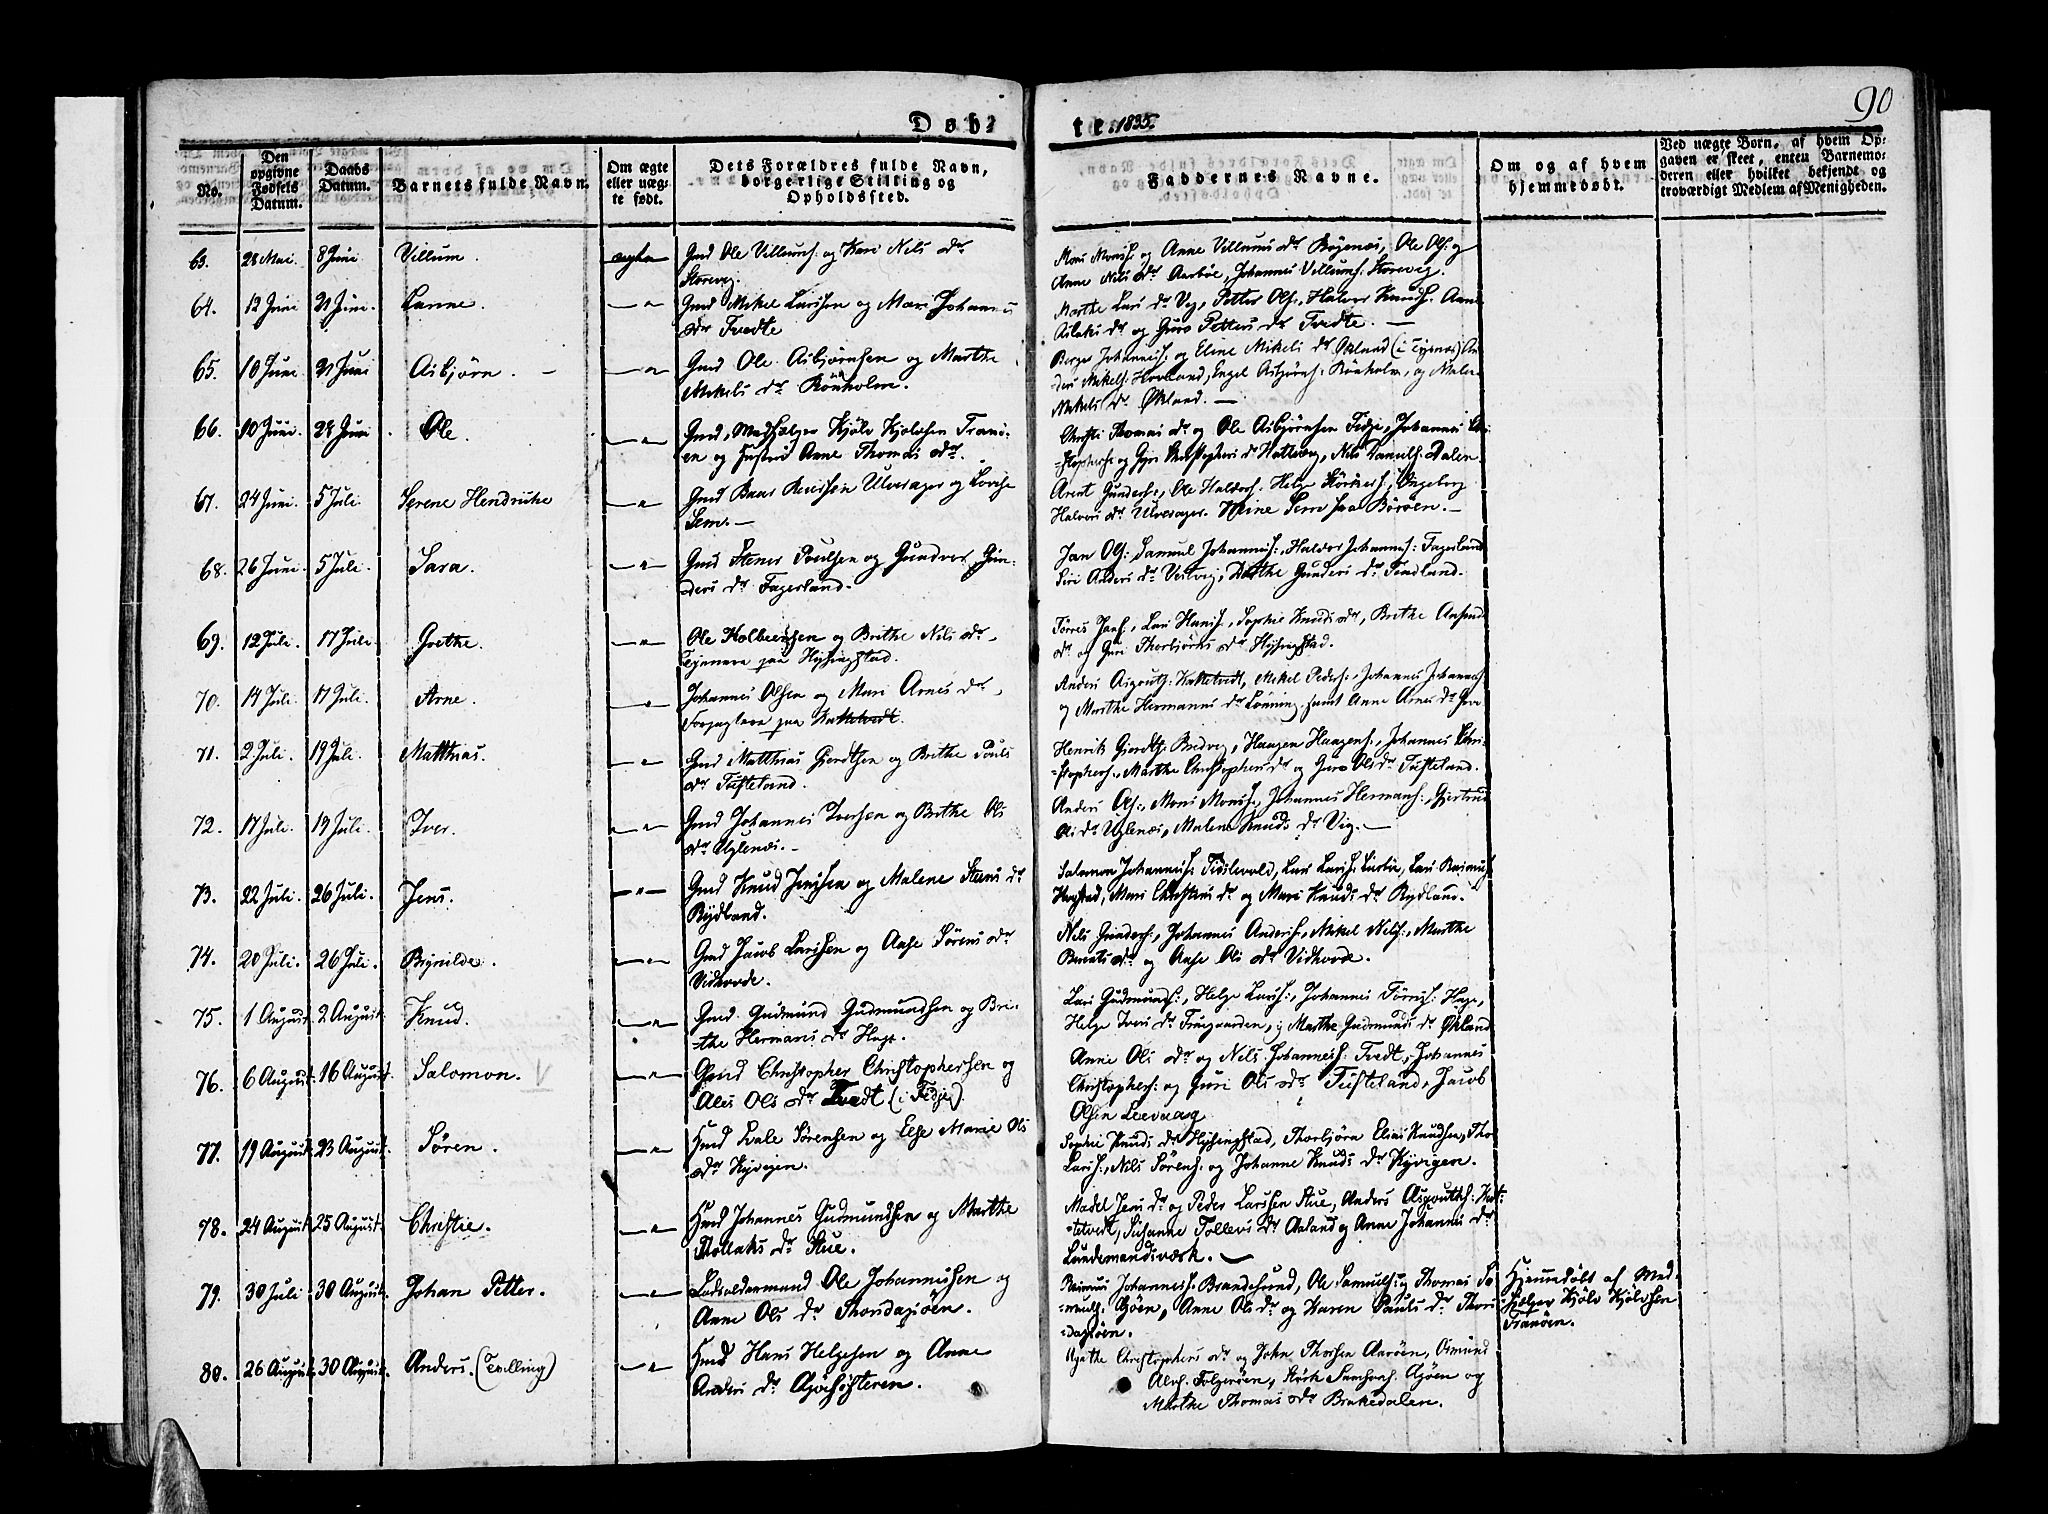 90
Døbte. 1835.
No.
Den opgivne Fødsels Datum.
Daabs Datum.
Barnets fulde Navn.
Om ægte eller uægte født.
Dets Forældres fulde Navn, borgerlige Stilling og Opholdssted.
Faddernes Navne.
Om og af hvem hjemmedøbt.
Ved uægte Børn, af hvem Opgaven er skeet, enten Barnemoderen eller hvilket bekjendt og troværdigt Medlem af Menigheden.
63. 28 Mai. 8 Juni Villum. ægte Gmd Ole Villums: og Kari Nils dr
Storevig.
Mons Monss: og Anne Villums dr Røgenæs, Ole Ols: og
Anne Nils dr Aarbøe, Johannes Villums: Storevig.
64. 12 Juni 21 Juni. Lanne. —"— Gmd Mikel Larssen og Mari Johannes
dr Tvedte
Marthe Lars dr Vig, Petter Ols:, Halvor Knuds: Anne
Aslaks dr og Guro Petters dr Tvedte. —
65. 10 Juni 21 Juni Asbjørn. —"— Gmd Ole Asbjørnsen og Marthe
Mikels dr Rönholm.
Berge Johanness: og Eline Mikels dr Økland (i Tysnes) An-
ders Mikels: Hovland, Engel Asbjørns: Rönholm, og Malene
Mikels dr Økland. —
66. 10 Juni. 28 Juni Ole. —"— Gmd, Medhjælper Kjölv Kjölvsen Tranö-
en og Hustru Anne Thomas dr.
Christi Thomas dr og Ole Asbjørnsen Fidje, Johannes Chri-
stophers: og Guri Christophers dr Hattevig, Nils Samuels: Dalen
67. 24 Juni. 5 Juli. Serene Hendrikke —"— Gmd Baar Iversson Ulversager og Lovise
Sem. —
Arent Gunders:, Ole Haldors: Helge Störkers:, Ingeborg
Halvors dr Ulversager. Stine Sem paa Börøen. —
68. 26 Juni. 5 Juli. Sara. —"— Gmd Stener Poulsen og Gundvor Gun-
ders dr Fagerland.
Jan Ols: Samuel Johanness:, Haldor Johanness: Fagerland
Siri Anders dr Vestvig, Dorthe Gunders dr Fendland.
69. 12 Juli. 17 Juli. Grethe. —"— Ole Kolbeensen og Brithe Nils dr,
Tjenere paa Hysingstad.
Törres Jans:, Lars Hans:, Sophie Knuds dr, Brithe Aasmd
dr og Guri Thorbjörns dr Hysingstad.
70. 14 Juli. 17 Juli. Arne. —"— Johannes Olsen og Mari Arnes dr,
paa Hattetvedt.
Anders Asgouts: Hattetvedt, Mikel Peders:, Johannes Johanness:
og Marthe Hermanns dr Lönning samt Anne Arnes dr
71. 2 Juli. 19 Juli. Matthias. —"— Gmd Matthias Gjerdtsen og Brithe Pouls
dr Tufteland.
Henrik Gjerdts: Bredvig, Haagen Haagens:, Johannes Chri-
stophers:, Marthe Christophers dr og Guro Ols dr Tufteland.
72. 17 Juli. 19 Juli. Iver. —"— Gmd Johannes Iversen og Brithe Ols
dr Uglenæs. —
Anders Ols:, Mons Monss:, Johannes Hermans:, Gjertrud
Ols dr Uglenæs, Malene Knuds dr Vig. —
73. 22 Juli. 26 Juli. Jens. —"— Gmd Knud Jenssen og Malene Steens dr
Rydland.
Salomon Johanness: Lars Larss: Lars Rasmuss:
Havstad, Mari Christens dr og Mari Knuds dr Rydland.
74. 20 Juli. 26 Juli. Brynilde. —"— Gmd Jacob Larssen og Aase Sörens dr
Vidhovde.
Nils Gunders:, Johannes Anderss:, Mikel Nils:, Marthe
Berents dr og Aase Ols dr Vidhovde.
75. 1 August. 2 August. Knud. —"— Gmd. Gudmund Gudmundsen og Bri-
the Hermans dr Hage.
Lars Gudmunds:, Helge Larss:, Johannes Törress: Hage,
Helge Ivers dr Friisgaarden, og Marthe Gudmunds dr Økland
76. 6 August. 16 August. Salomon. V —"— Gmd Christopher Christophersen og
Ales Ols dr Tvedt (i Fidje).
Anne Ols dr og Nils Johanness: Tvedt, Johannes
Christophers: og Guri Ols dr Tufteland, Jacob
Olsen Leevaag
77. 19 August. 23 August. Søren. —"— Hmd Lale Sörensen og Else Marie Ols
dr Kyvigen.
Sophie Knuds dr Hysingstad, Thorbjörn Knudsen, Tho
Larss:, Nils Sörens: og Johanne Knuds dr Kyvigen.
78. 24 August. 25 August. Christie. —"— Hmd Johannes Gudmundsen og Marthe
Thollaks dr Stue.
Madel Jens dr og Peder Larssen Stue, Anders Asgouths: Hat-
tetvedt, Susanne Tollevs dr Aaland og Anne Johannes dr
Lundemandsværk. —
79. 30 Juli 30 August. Johan Petter. —"— Lodsoldermand Ole Johannessen og
Anne Ols dr Thorsdagsöen.
Rasmus Johanness: Brandesund, Ole Samuels: og Thomas Sa-
muels: Gjöen, Anne Ols dr og Karen Pauls dr Thors-
dagsöen.
Hjemmedøbt af Med-
hjælper Kjölv Kjölvsen
Tranöen.
80. 26 August. 30 August. Anders. (Tvilling) —"— Hmd Hans Helgesen og Anne
Anders dr
Agathe Christophers dr og John Thorsen Aaröen, Osmund
Folgeröen, Störk Samsons: Gjöen og
Marthe Thomas dr Brakedalen.